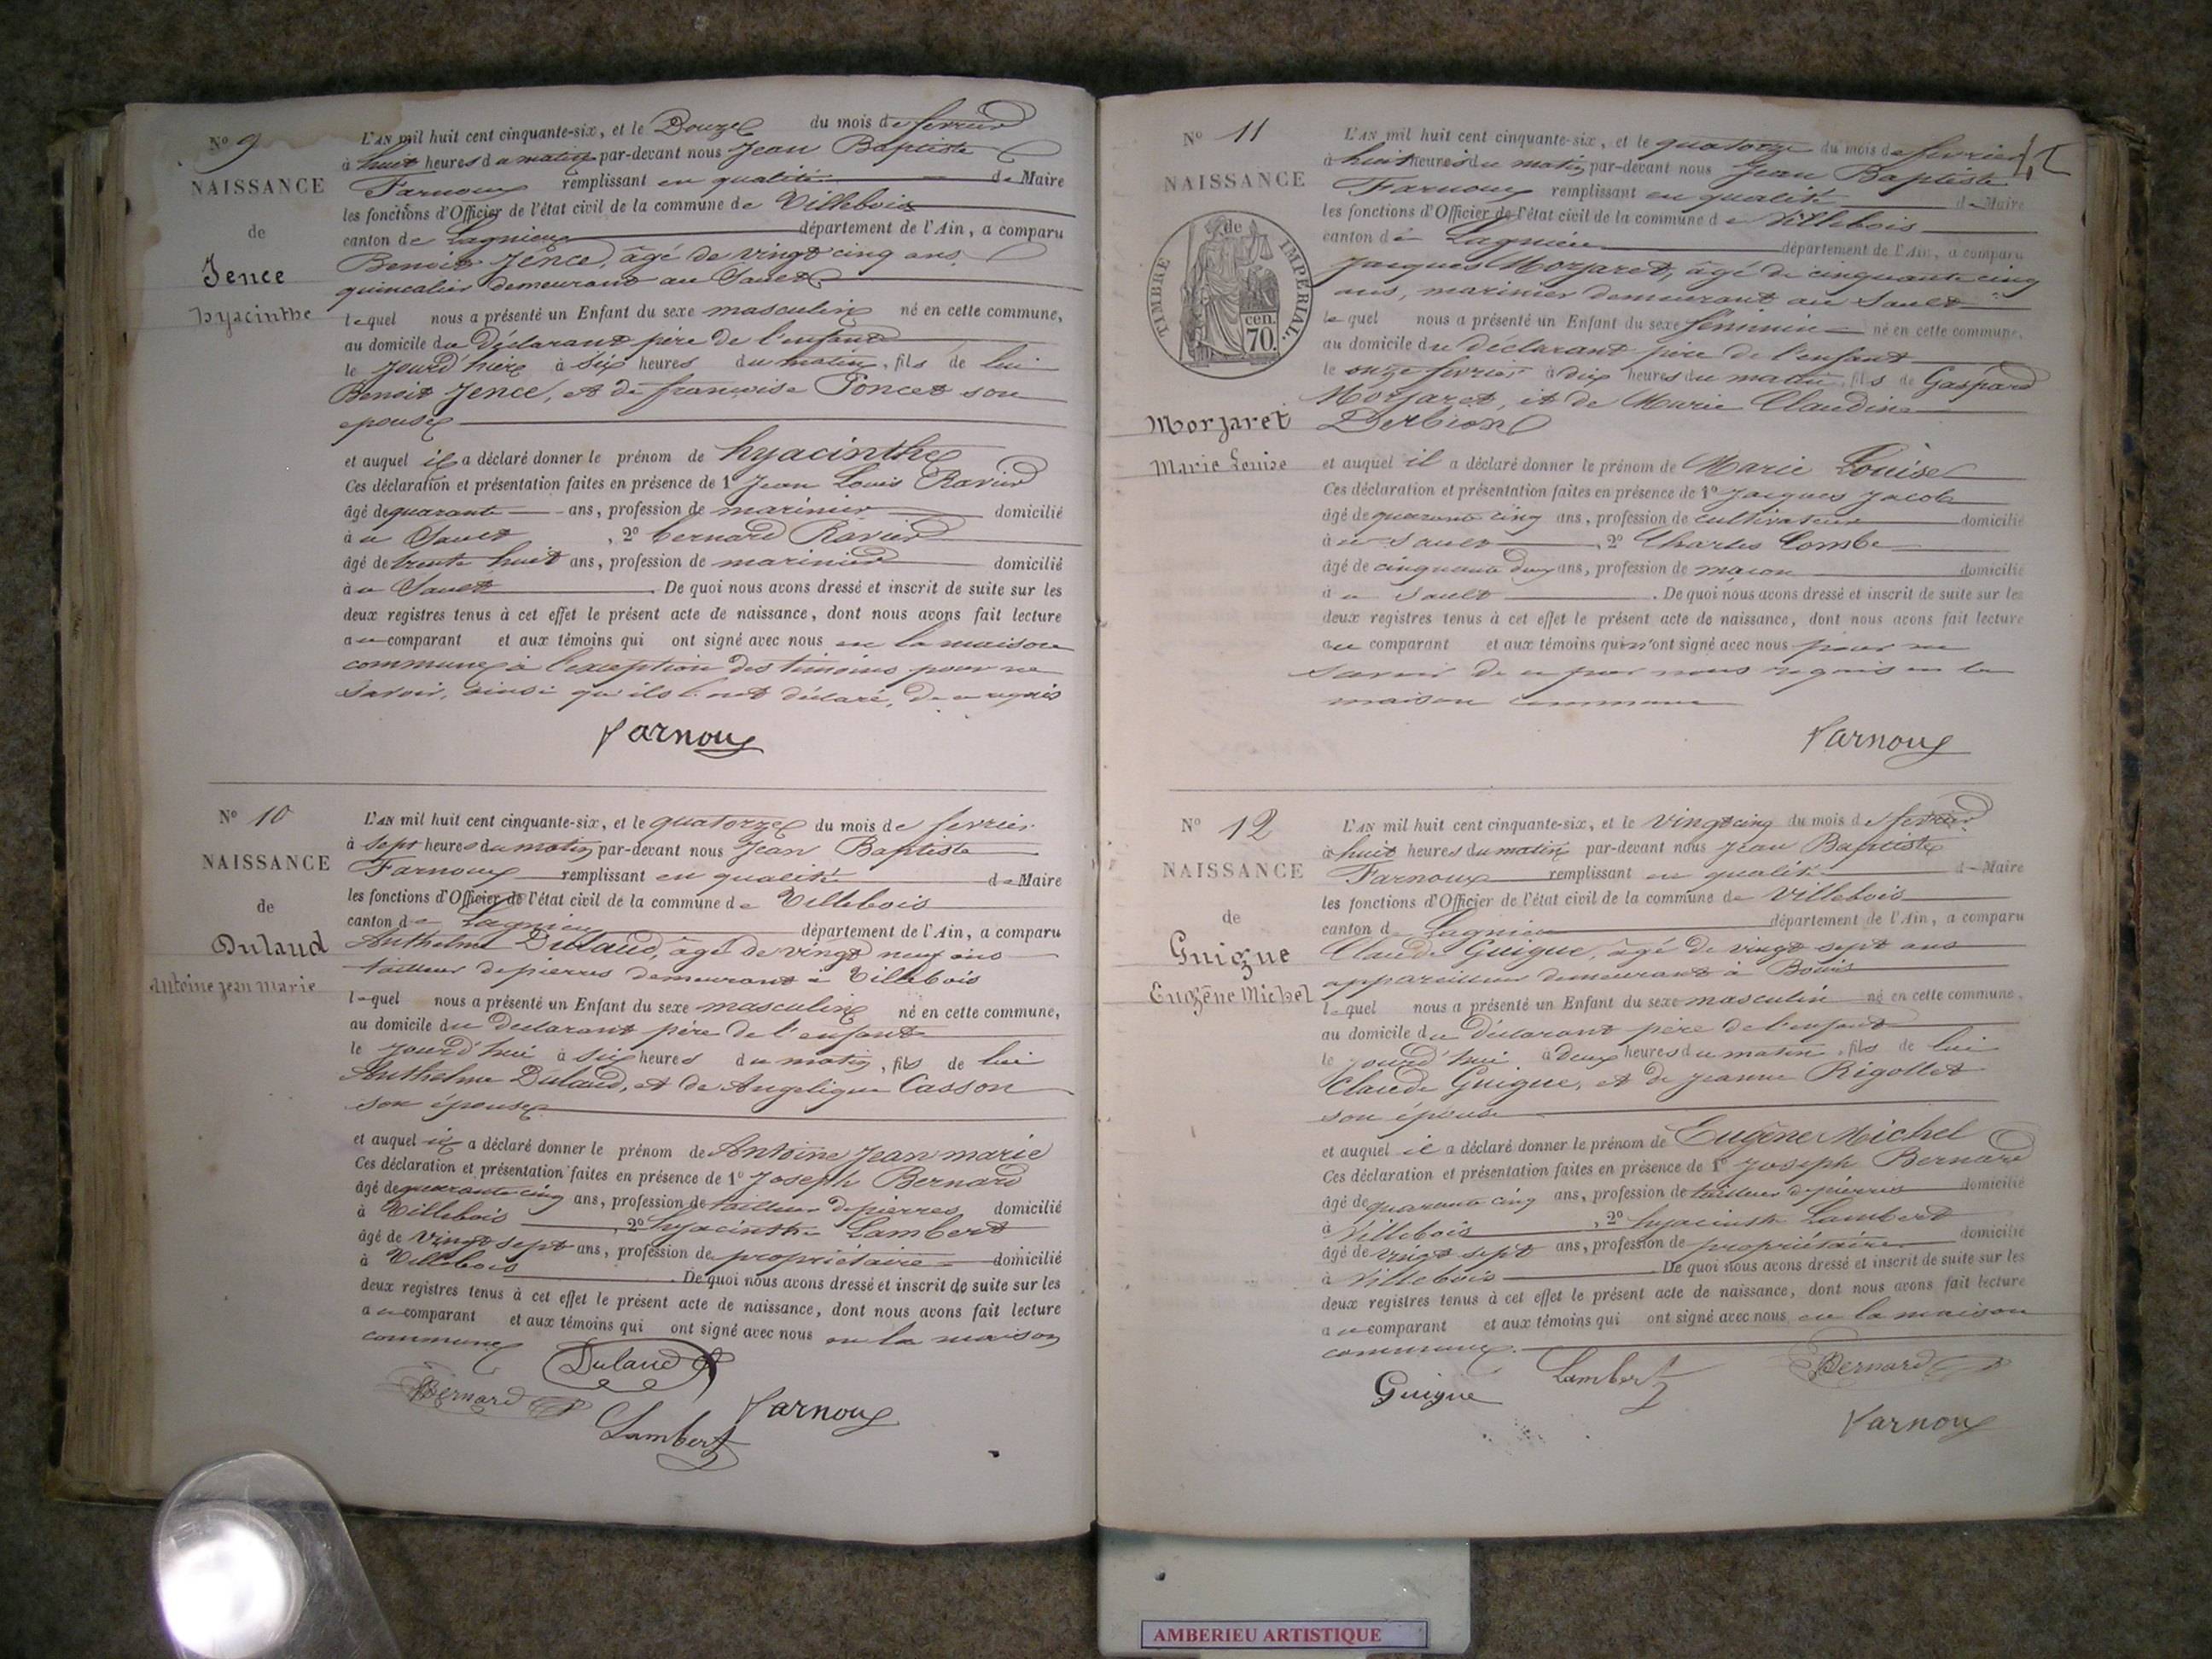 No 9
NAISSANCE
de
Jence
hyacinthe
L'AN mil huit cent cinquante-six, et le Douze du mois de fevrier
à huit heures du matin par-devant nous Jean Baptiste
Farnoux remplissant en qualité de Maire
les fonctions d'Officier de l'état civil de la commune de Villebois
canton de Lagnieu département de l'Ain, a comparu
Benoit Jence, âgé de vingt cinq ans
quincalier demeurant au Sault
lequel nous a présenté un Enfant du sexe masculin né en cette commune,
au domicile du déclarant père de l'enfant
le jourd'hier à Six heures du matin, fils de lui
Benoit Jence, et de françoise Poncet son
epouse
et auquel il a déclaré donner le prénom de hyacinthe
Ces déclaration et présentation faites en présence de 1º Jean Louis Ravier
âgé de quarante ans, profession de marinier domicilié
à u Sault, 2º bernard Ravier
âgé de trente huit ans, profession de marinier domicilié
à u Sault. De quoi nous avons dressé et inscrit de suite sur les
deux registres tenus à cet effet le présent acte de naissance, dont nous avons fait lecture
au comparant et aux témoins qui ont signé avec nous en la maison
commune à l'exception des témoins pour ne
savoir, ainsi qu'ils l'ont déclaré, de ce requis
Farnoux
No 10
NAISSANCE
de
Dulaud
Antoine jean marie
L'AN mil huit cent cinquante-six, et le quatorze du mois de fevrier
à sept heures du matin par-devant nous Jean Baptiste
Farnoux remplissant en qualité de Maire
les fonctions d'Officier de l'état civil de la commune de Villebois
canton de Lagnieu département de l'Ain, a comparu
Anthelme Dulaud, âgé de vingt neuf ans
tailleur de pierres demeurant à Villebois
lequel nous a présenté un Enfant du sexe masculin né en cette commune,
au domicile du déclarant père de l'enfant
le jourd'hui à six heures du matin, fils de lui
Anthelme Dulaud, et de Angelique Casson
son épouse
et auquel il a déclaré donner le prénom de Antoine Jean marie
Ces déclaration et présentation faites en présence de 1º Joseph Bernard
âgé de quarante cinq ans, profession de tailleur de pierres domicilié
à Villebois, 2º hyacinthe Lambert
âgé de vingt sept ans, profession de propriétaire domicilié
à Villebois. De quoi nous avons dressé et inscrit de suite sur les
deux registres tenus à cet effet le présent acte de naissance, dont nous avons fait lecture
au comparant et aux témoins qui ont signé avec nous en la maison
commune
Dulaud
Bernard
Farnoux
Lambert
No 11
NAISSANCE
TIMBRE IMPERIAL.
de
70 cen.
Morjaret
Marie Louise
L'AN mil huit cent cinquante-six, et le quatorze du mois de fevrier
à huit heures du matin par-devant nous Jean Baptiste
Farnoux remplissant en qualité de Maire
les fonctions d'Officier de l'état civil de la commune de Villebois
canton de Lagnieu département de l'Ain, a comparu
Jacques Morjaret, âgé de cinquante cinq
ans, marinier demeurant au Sault
lequel nous a présenté un Enfant du sexe féminin né en cette commune,
au domicile du déclarant père de l'enfant
le onze fevrier à dix heures du matin, fils de Gaspard
Morjaret, et de Marie Claudine
Derbion
et auquel il a déclaré donner le prénom de Marie Louise
Ces déclaration et présentation faites en présence de 1º Jacques Jacob
âgé de quarante cinq ans, profession de cultivateur domicilié
à u Sault, 2º Charles Combe
âgé de cinquante deux ans, profession de maçon domicilié
à u Sault. De quoi nous avons dressé et inscrit de suite sur les
deux registres tenus à cet effet le présent acte de naissance, dont nous avons fait lecture
au comparant et aux témoins qui n'ont signé avec nous pour ne
savoir de ce par nous requis en la
maison commune
Farnoux
No 12
NAISSANCE
de
Guigue
Eugène Michel
L'AN mil huit cent cinquante-six, et le vingt cinq du mois de fevrier
à huit heures du matin par-devant nous Jean Baptiste
Farnoux remplissant en qualité de Maire
les fonctions d'Officier de l'état civil de la commune de Villebois
canton de Lagnieu département de l'Ain, a comparu
Claude Guigue, âgé de vingt sept ans
appareilleur demeurant à Bouis
lequel nous a présenté un Enfant du sexe masculin né en cette commune,
au domicile du déclarant père de l'enfant
le jourd'hui à deux heures du matin, fils de lui
Claude Guigue, et de jeanne Rigollet
son épouse
et auquel il a déclaré donner le prénom de Eugène Michel
Ces déclaration et présentation faites en présence de 1º Joseph Bernard
âgé de quarante cinq ans, profession de tailleur de pierres domicilié
à Villebois, 2º hyacinthe Lambert
âgé de vingt sept ans, profession de propriétaire domicilié
à Villebois. De quoi nous avons dressé et inscrit de suite sur les
deux registres tenus à cet effet le présent acte de naissance, dont nous avons fait lecture
au comparant et aux témoins qui ont signé avec nous en la maison
commune.
Guigue
Lambert
Bernard
Farnoux
AMBERIEU ARTISTIQUE